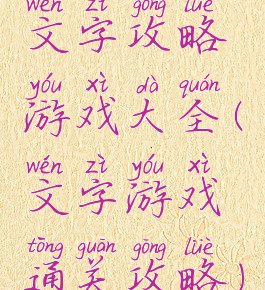 wén zì gōng lüè
文字攻略
yóu xì dà quán
游戏大全(
wén zì yóu xì
文字游戏
tōng guān gōng lüè
通关攻略)